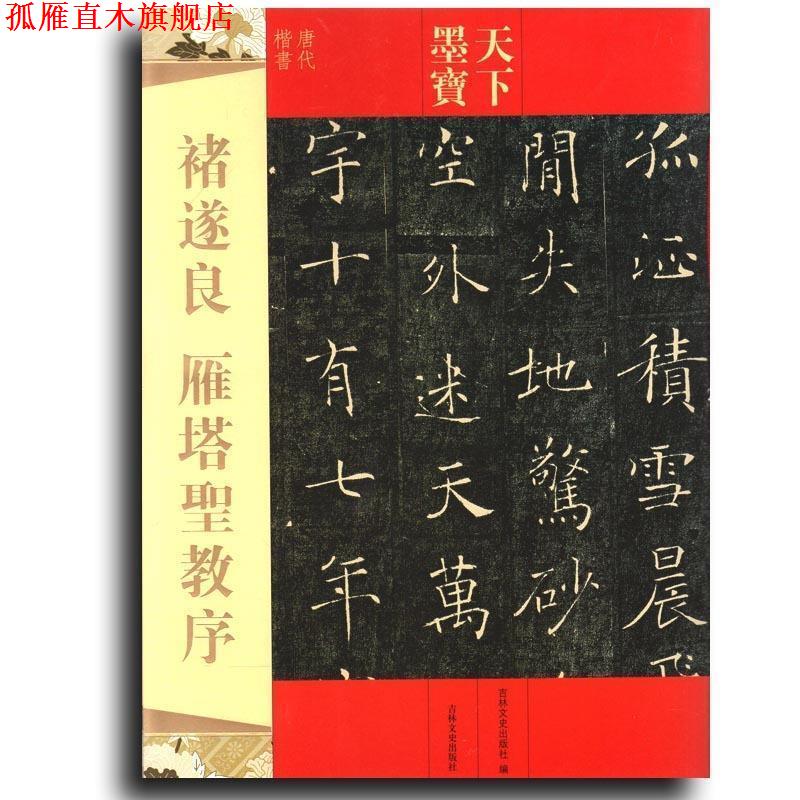 孤雁直木旗舰店
天下
墨寶
唐代
楷書
褚遂良 雁塔聖教序
孤征積雪晨飛
閒失地驚砂
空外迷天萬
宇十有七年
吉林文史出版社 编
吉林文史出版社